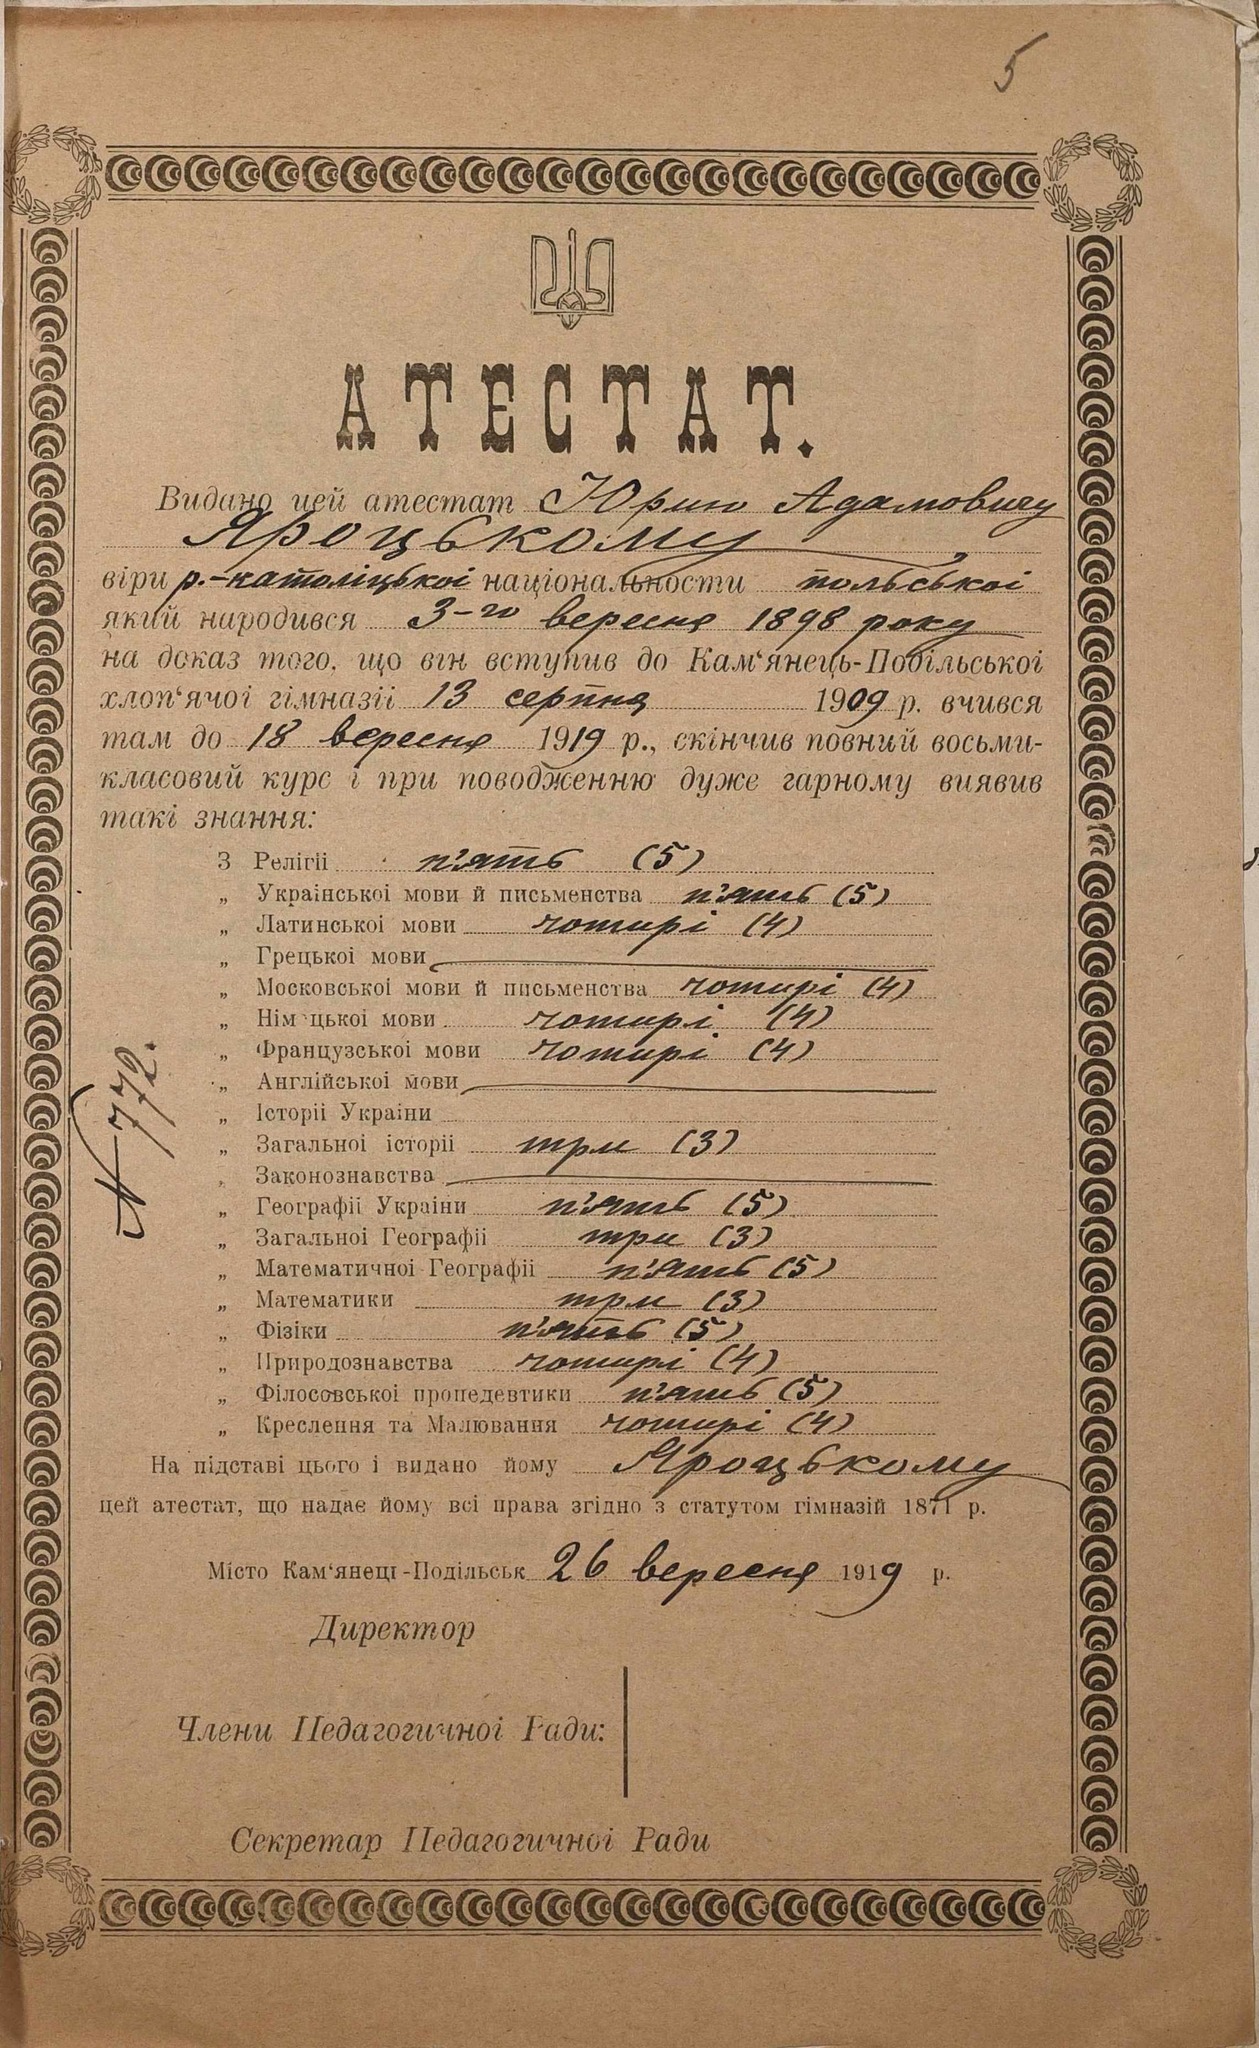 5
АТЕСТАТ.
Видано цей атестат Юрию Адамовичу
Яроцькому
віри р.-католіцькоі національности польськоі
який народився 3-го вересня 1898 року
на доказ того, що він вступив до Кам'янець-Подільськоі
хлоп'ячоі гімназіі 13 серпня 1909 р. вчився
там до 18 вересня 1919 р., скінчив повний восьми-
класовий курс і при поводженню дуже гарному виявив
такі знання:
З Релігіі п'ять (5)
„ Украінськоі мови й письменства п'ять (5)
„ Латинськоі мови чотирі (4)
„ Грецькоі мови
„ Московськоі мови й письменства чотирі (4)
„ Німецькоі мови чотирі (4)
„ Французськоі мови чотирі (4)
„ Англійськоі мови
„ Історіі Украіни
„ Загальноі історіі три (3)
„ Законознавства
„ Географіі Украіни п'ять (5)
„ Загальноі Географіі три (3)
„ Математичноі Географіі п'ять (5)
„ Математики три (3)
„ Фізіки п'ять (5)
„ Природознавства чотирі (4)
„ Філосовськоі пропедевтики п'ять (5)
„ Креслення та Малювання чотирі (4)
№ 772.
На підставі цього і видано йому Яроцькому
цей атестат, що надає йому всі права згідно з статутом гімназій 1871 р.
Місто Кам'янець-Подільськ 26 вересня 1919 р.
Директор
Члени Педагогичноі Ради:
Секретар Педагогичноі Ради